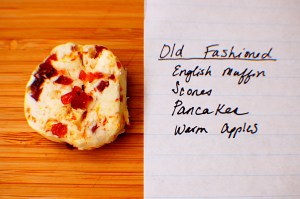 Old Fashioned
English muffin
Scones
Pancakes
Warm Apples